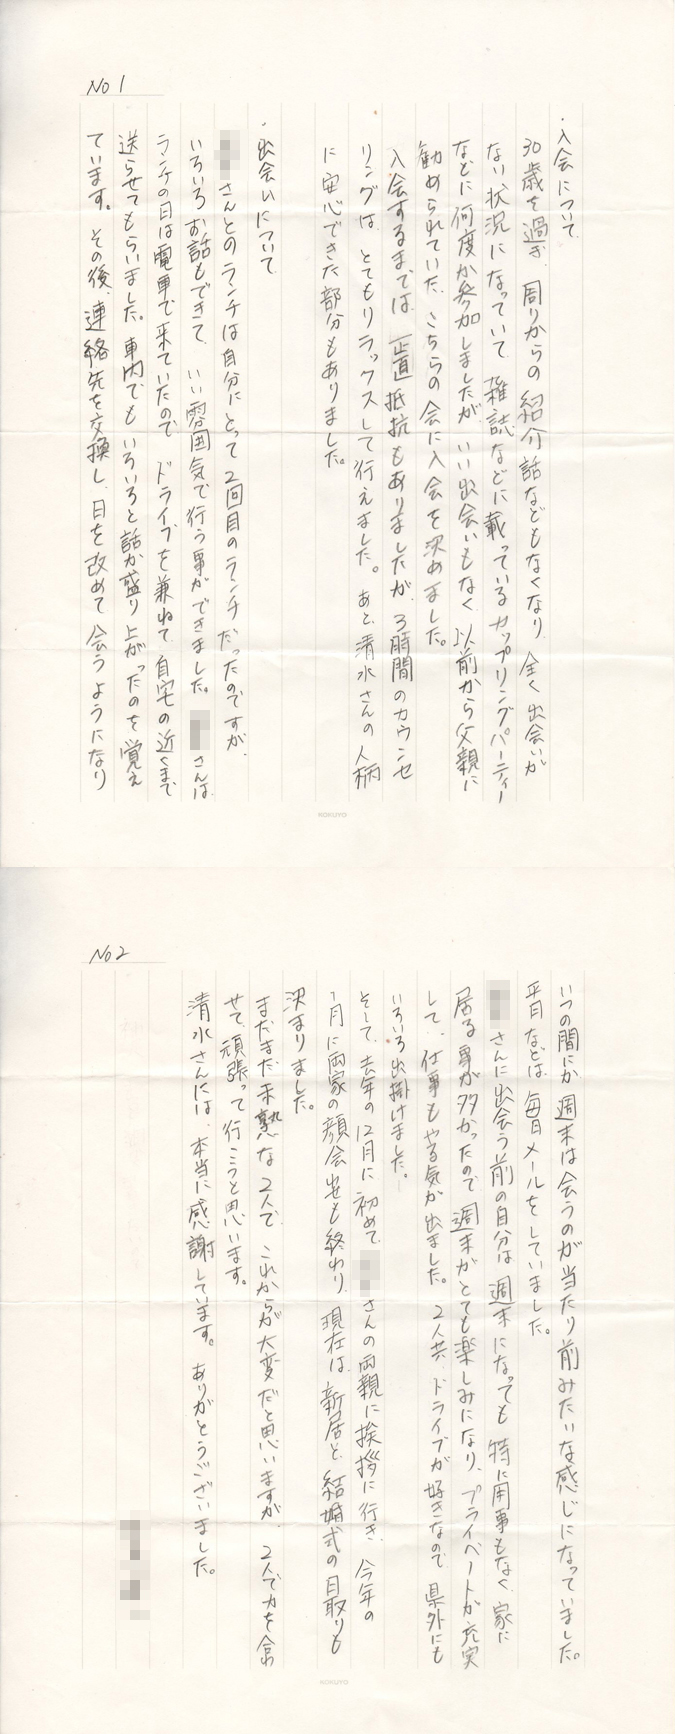 No 1
・入会について
30歳を過ぎ、周りからの紹介話などもなくなり、全く出会いが
ない状況になっていて、雑誌などに載っているカップリングパーティー
などに何度か参加しましたが、いい出会いもなく、以前から父親に
勧められていた、こちらの会に入会を決めました。
入会するまでは、正直抵抗もありましたが、3時間のカウンセ
リングは、とてもリラックスして行えました。あと、清水さんの人柄
に安心できた部分もありました。
・出会いについて
さんとのランチは自分にとって2回目のランチだったのですが、
いろいろお話もできて、いい雰囲気で行う事ができました。さんは、
ランチの日は電車で来ていたので、ドライブを兼ねて、自宅の近くまで
送らせてもらいました。車内でもいろいろと話が盛り上がったのを覚え
ています。その後、連絡先を交換し、日を改めて会うようになり
KOKUYO
No 2
いつの間にか週末は会うのが当たり前みたいな感じになっていました。
平日などは、毎日メールをしていました。
さんに出会う前の自分は、週末になっても特に用事もなく、家に
居る事が多かったので、週末がとても楽しみになり、プライベートが充実
して、仕事もやる気が出ました。2人共、ドライブが好きなので、県外にも
いろいろ出掛けました。
そして、去年の12月に初めて、さんの両親に挨拶に行き、今年の
1月に両家の顔会せも終わり、現在は、新居と、結婚式の日取りも
決まりました。
まだまだ未熟な2人で、これからが大変だと思いますが、2人で力を合わ
せて、頑張って行こうと思います。
清水さんには、本当に感謝しています。ありがとうございました。
KOKUYO